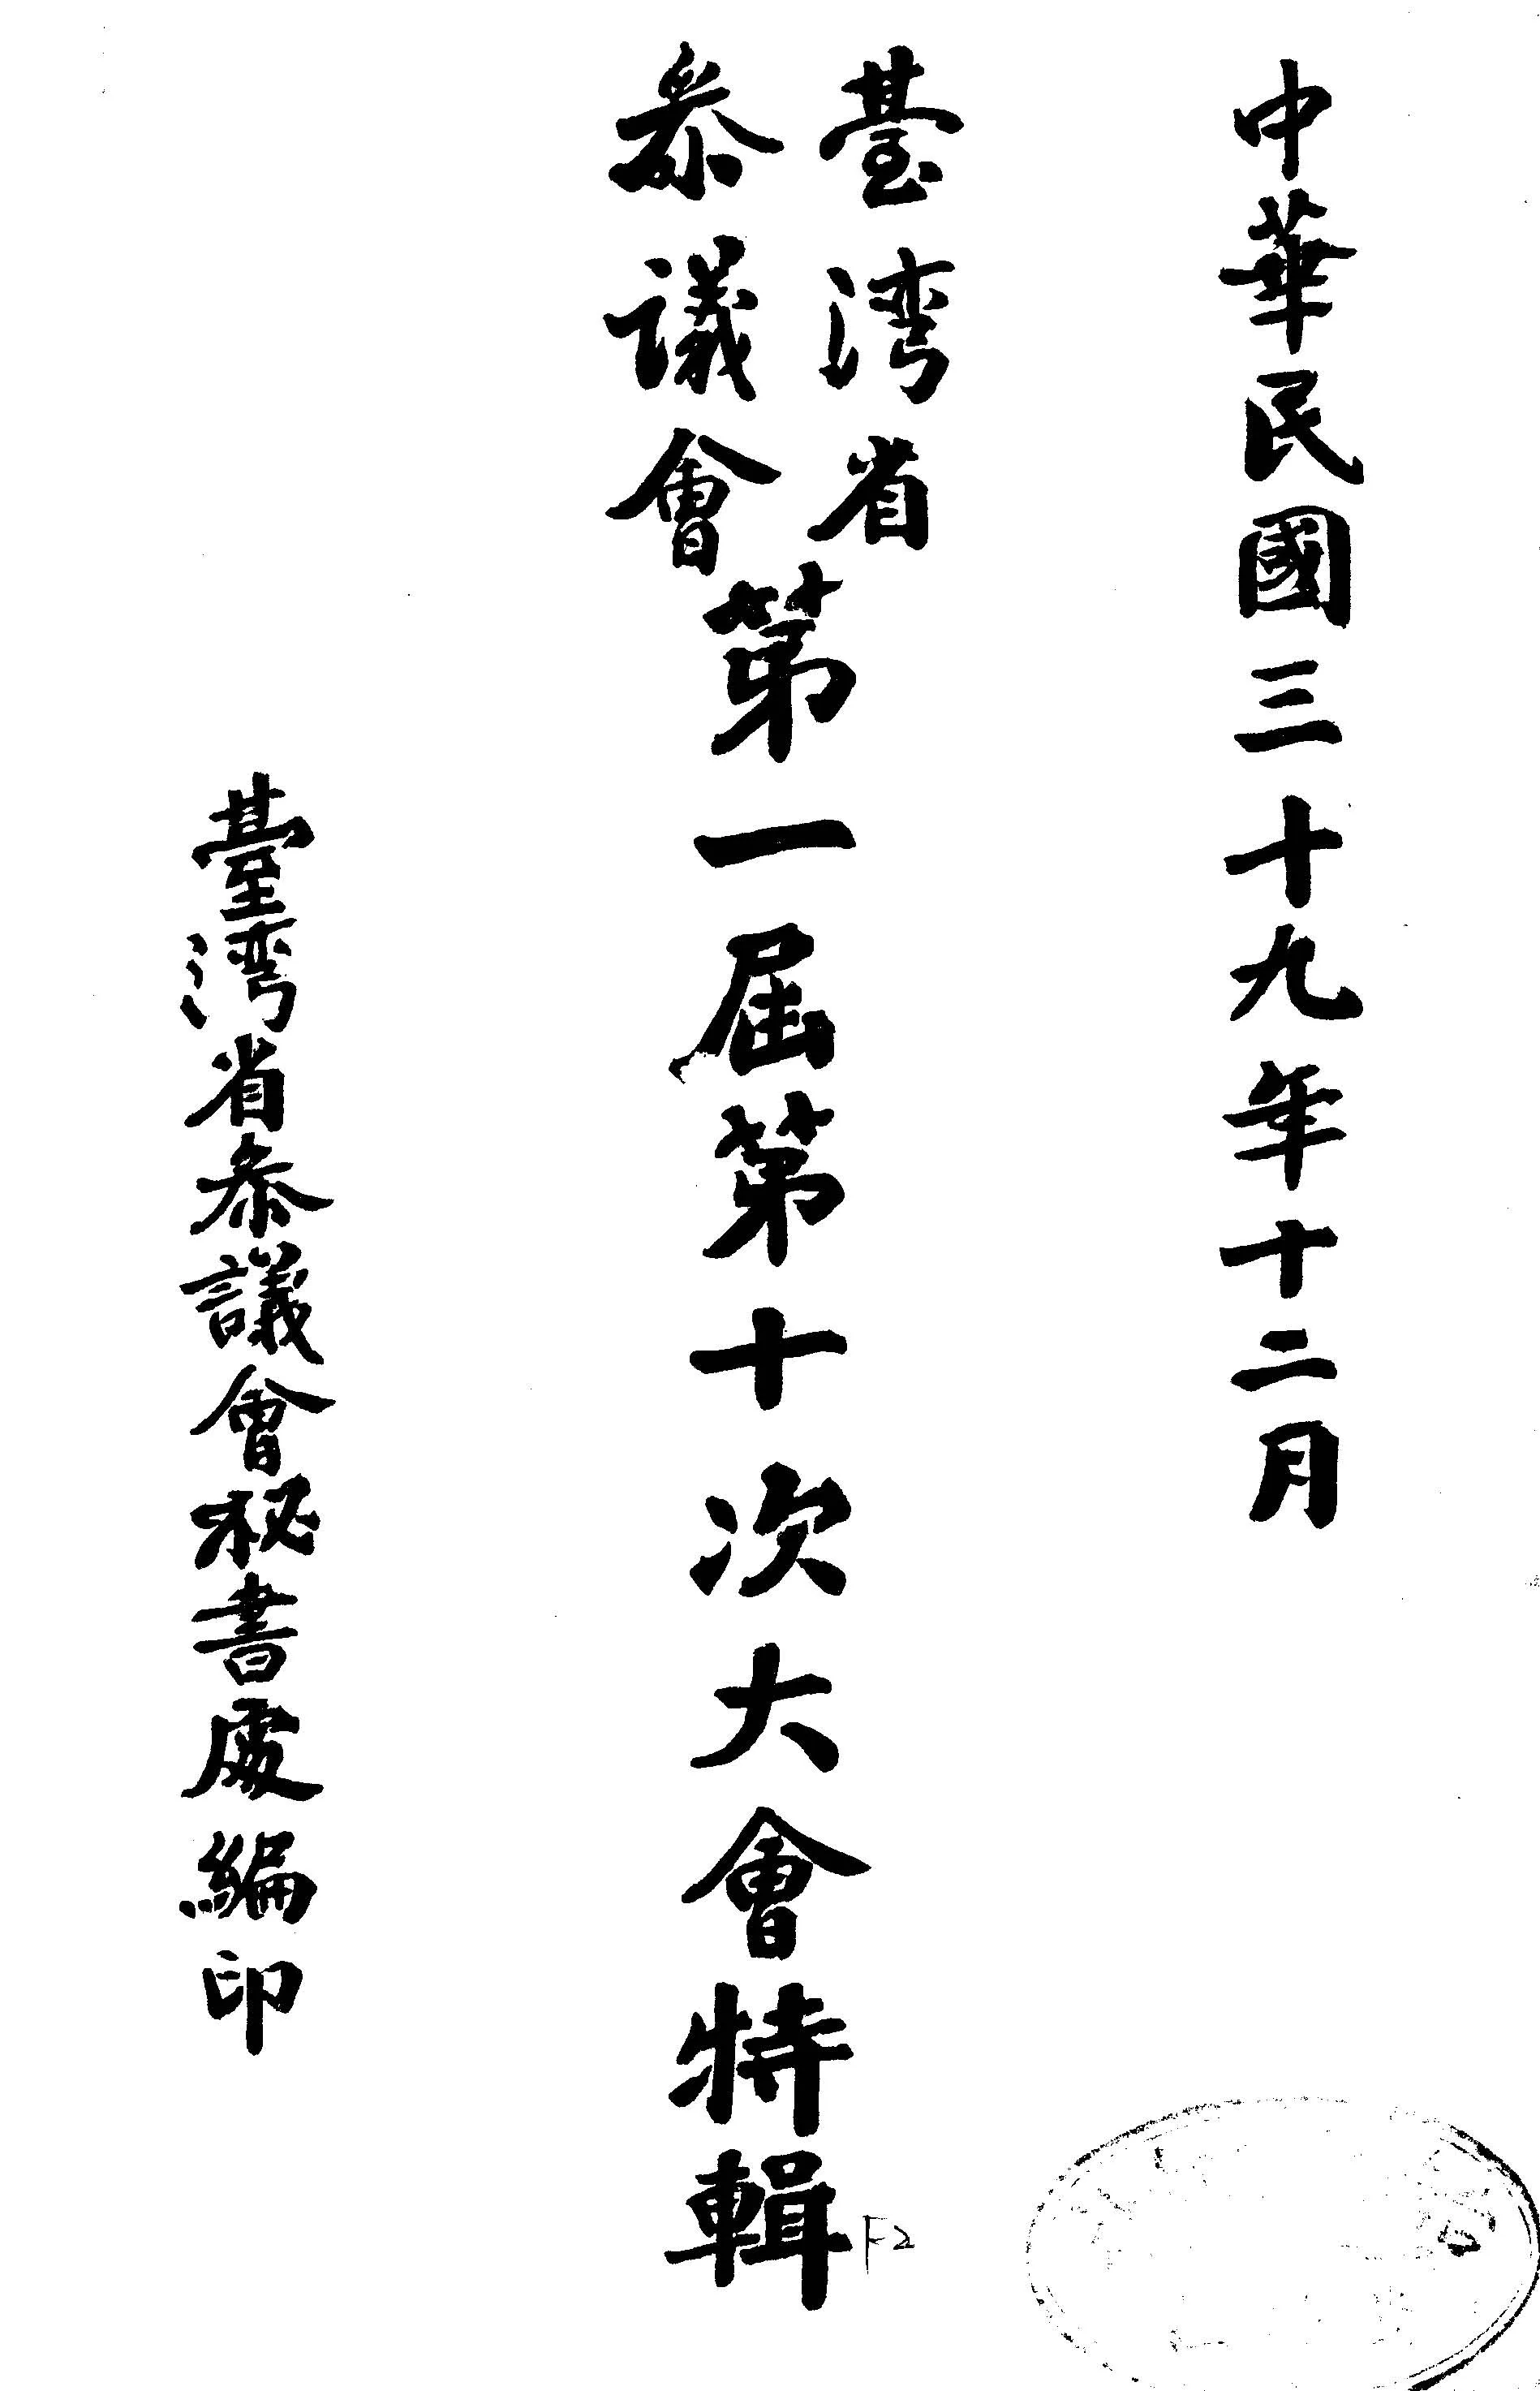 中華民國三十九年十二月
臺湾省
叅議會
第一屆第十次大會特輯
F2
臺湾省叅議會秘書處編印